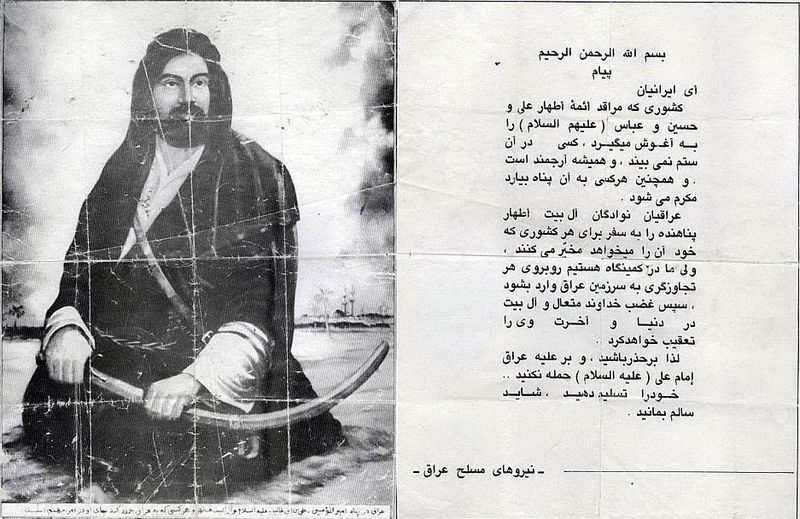 بسم الله الرحمن الرحیم
پیام
أی ایرانیان
کشوری که مراقد ائمهٔ أطهار علی و
حسین و عباس ( علیهم السلام ) را
به آغوش میگیرد ، کسی در آن
ستم نمی بیند ، و همیشه أرجمند است
. و همچنین هرکسی به آن پناه بیارد
مکرم می شود .
عراقیان نوادگان آل بیت أطهار
پناهنده را به سفر برای هر کشوری که
خود آن را میخواهد مخیّر می کنند ،
ولی ما در کمینگاه هستیم روبروی هر
تجاوزگری به سرزمین عراق وارد بشود
، سپس غضب خداوند متعال و آل بیت
در دنیا و آخرت وی را
تعقیب خواهدکرد .
لذا برحذرباشید ، و بر علیه عراق
إمام علی ( علیه السلام ) حمله نکنید ..
خودرا تسلیم دهید ، شاید
سالم بمانید .
ـ نیروهای مسلح عراق ـ
عراق در پناه أمیر المؤمنین علی بن أبی طالب علیه السلام و آل است